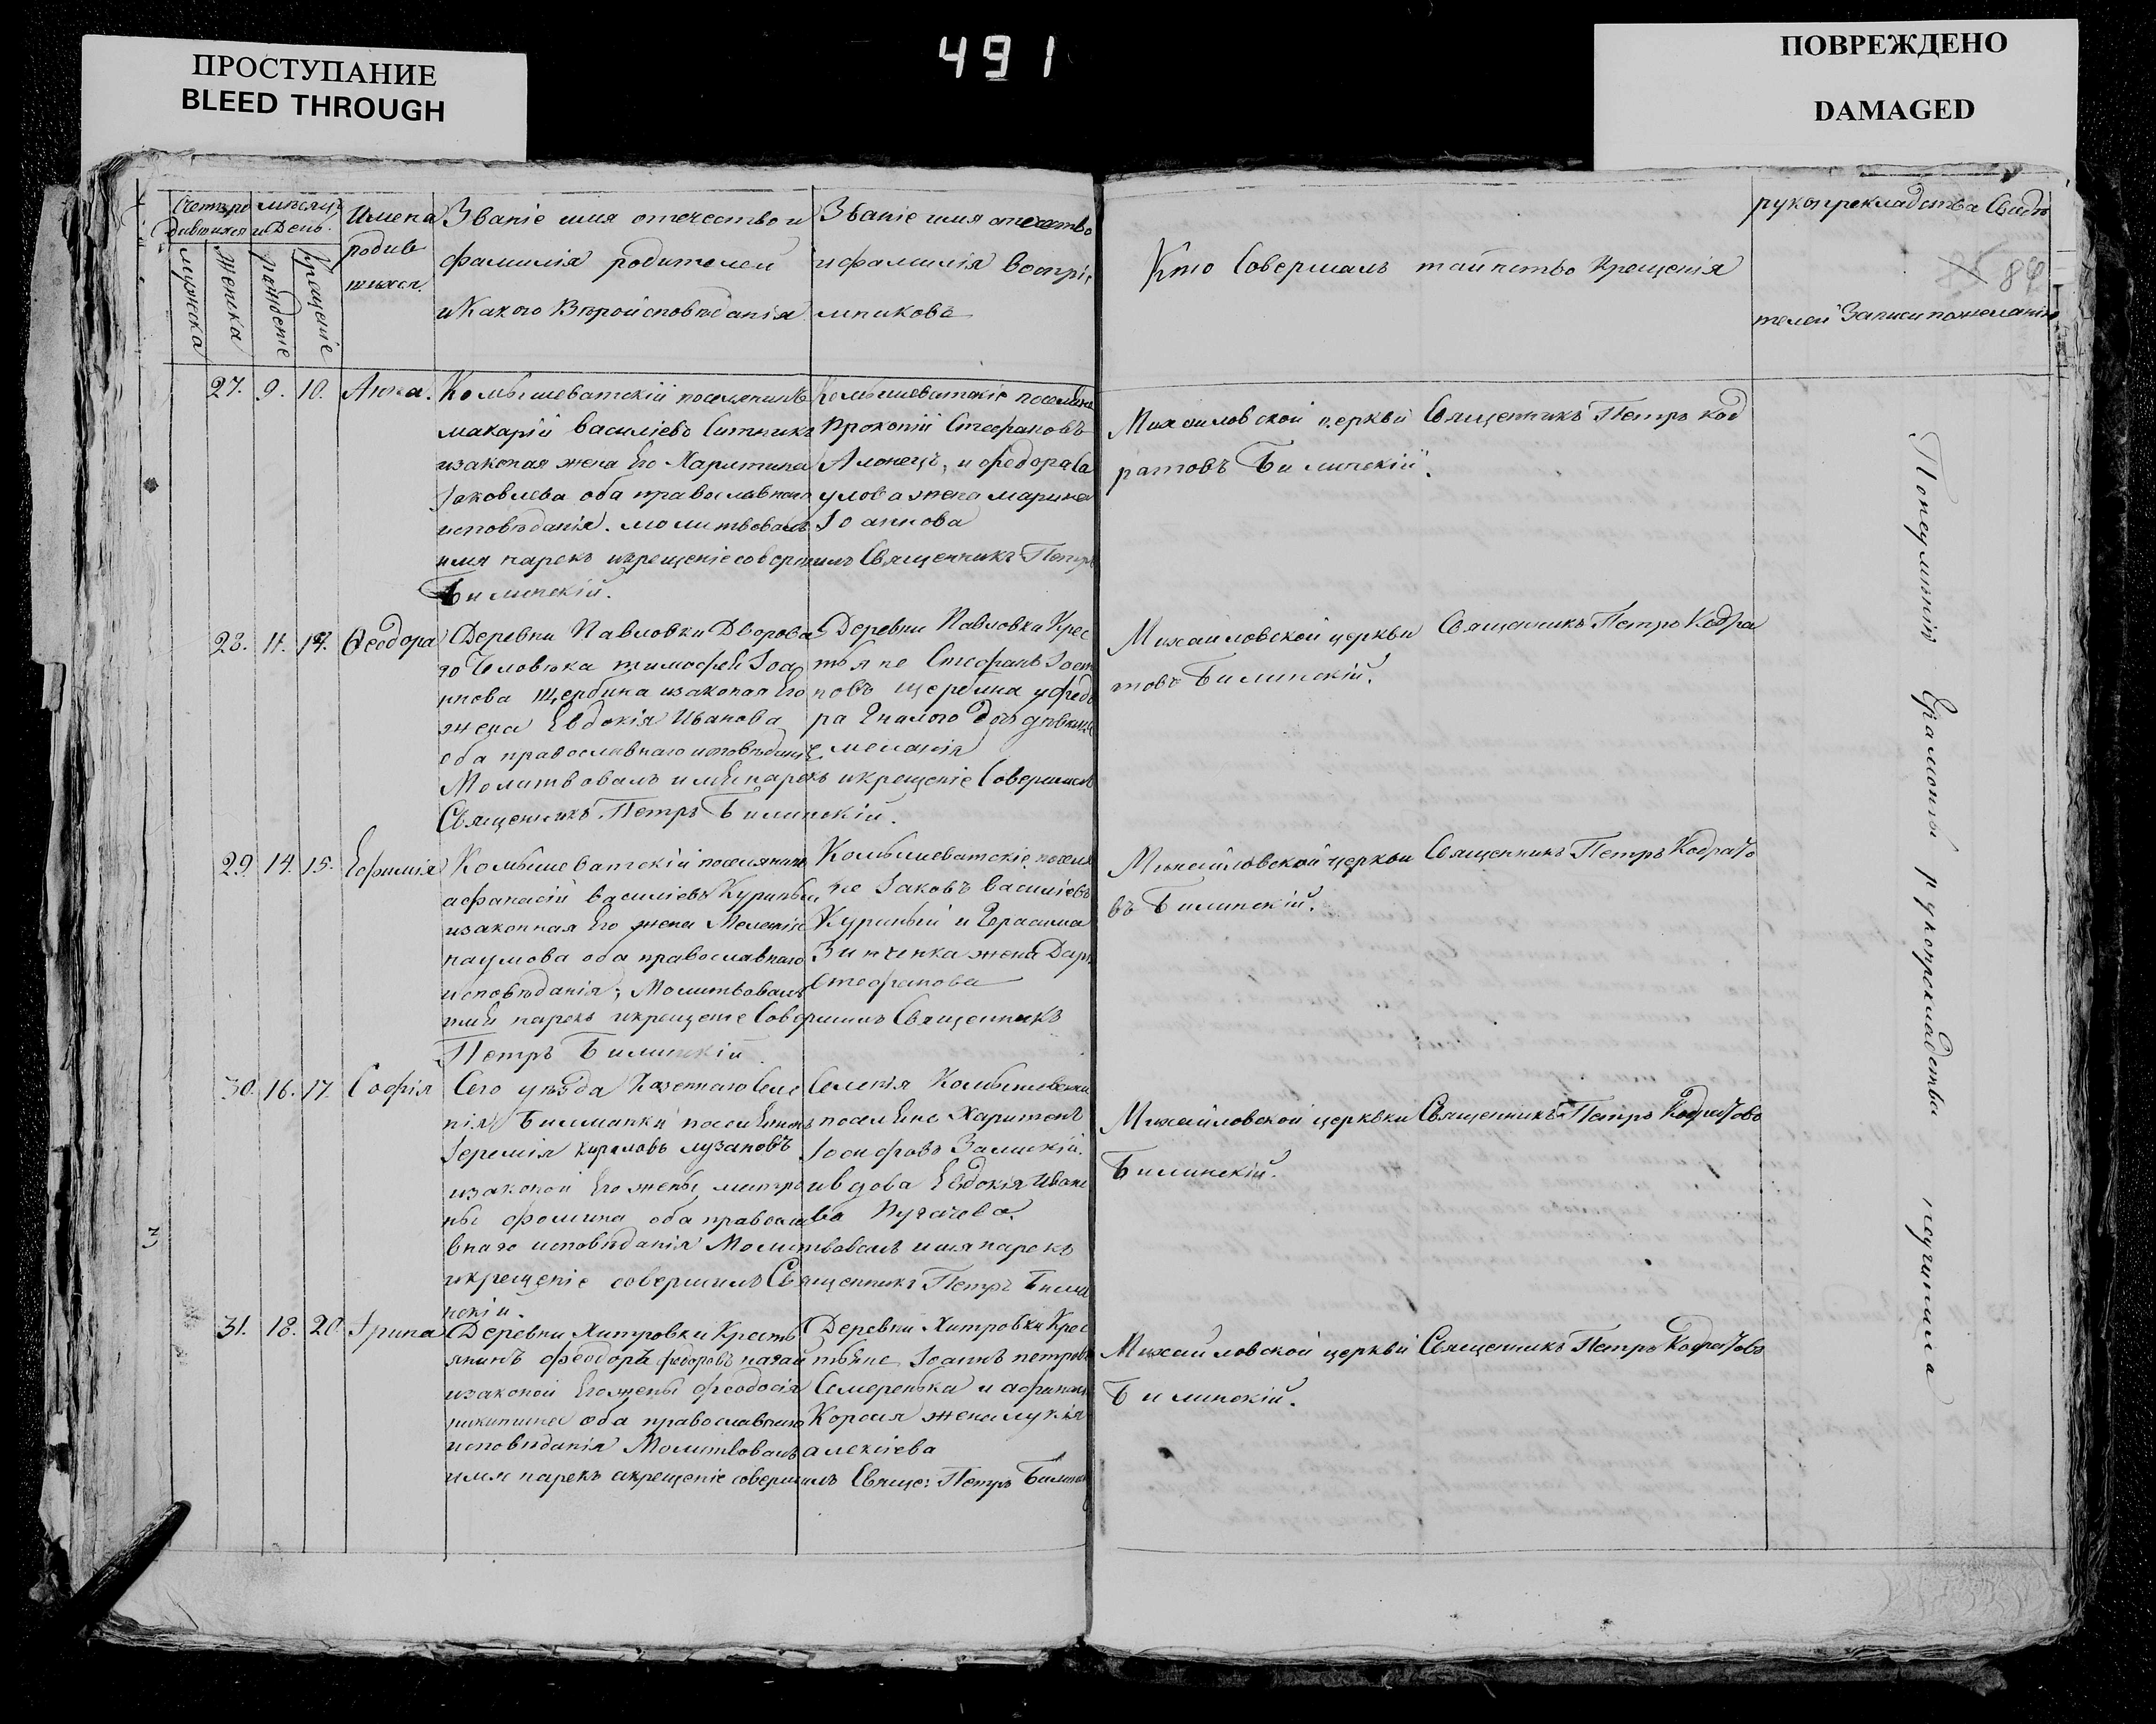 491
ПРОСТУПАНИЕ
BLEED THROUGH
ПОВРЕЖДЕНО
DAMAGED
Счетъ ро мѣсяцъ
дившихся и День.
мужска
женска
рожденіе
крещеніе
Имена
родив
шихся.
Званіе имя отечество и
фамилія родителей
и Какого Вѣроисповѣданія
Званіе имя отечество
и фамилія воспрі,
мниковъ
Кто Совершалъ таинство Крещенія
рукоприкладства Свидѣ
85 84
телей Записи пожеланію
27. 9. 10. Анна.
Комышеватскій поселянинъ
макарій василіевъ Ситникъ
изаконая жена Его Харитина
Іаковлева оба православнаго
исповѣданія. молитвовалъ
имя нарекъ икрещеніе совершилъ Священникъ Петръ
Билинскій.
Комышеватскіе поселяне
Прокопій Стефановъ
и Федора Са
улова жена марина
Іоаннова
Михаиловской церкви Священникъ Петръ код
ратовъ Билинскій.
28. 11. 14. Феодора
Деревни Павловки Дворова
го Человѣка тимофей Іоа
ннова Щербина изаконая Его
жена Евдокія Иванова
оба православнаго исповѣданія
Молитвовалъ имя нарекъ икрещеніе Совершилъ
Священникъ Петръ Билинскій.
Деревни Павловки Крес
тьяне Стефанъ Іоан
новъ щербина уфедо
ра Гнилого
меланія
Михаиловской церкви Священникъ Петръ Кодра
товъ Билинскій.
29. 14. 15. Евфимія
Комышеватскій поселянинъ
афанасій василіевъ Куриный
изаконная Его жена Меланія
наумова оба православнаго
исповѣданія; Молитвовалъ
имя нарекъ икрещеніе Совершилъ Священникъ
Петръ Билинскій
Комышеватскіе поселя
не Іаковъ василіевъ
Куриный и Герасима
Зинченка жена Дарія
Стефанова
Михаиловской церкви Священникъ Петръ Кодрато
въ Билинскій.
30. 16. 17. Софія
Сего уѣзда Казеннаго Селе
нія Билманки поселянинъ
Іеремія кириловъ лузановъ
изаконой Его жены митро
ны фомина оба правосла
внаго исповѣданія Молитвовалъ имя нарекъ
икрещеніе совершилъ Священникъ Петръ Били
нскій.
Селенія Комышеватки
поселяне Харитонъ
Іосифовъ Залискій.
ивдова Евдокія Ивано
ва Пугачева.
Михаиловской церкви Священникъ Петръ Кодратовъ
Билинскій.
31. 18. 20. Ірина
Деревни Хитровки Кресть
янинъ феодоръ федоровъ
изаконой Его жены феодосія
никитина оба православнаго
исповѣданія Молитвовалъ
имя нарекъ икрещеніе совершилъ Свяще: Петръ Билинск
Деревни Хитровки Крес
тьяне Іоаннъ петровъ
Семеренька и афанасія
Короля жена лукія
алексіева
Михаиловской церкви Священникъ Петръ Кодратовъ
Билинскій.
Понеумѣнію Грамоты рукоприкладства неучинила